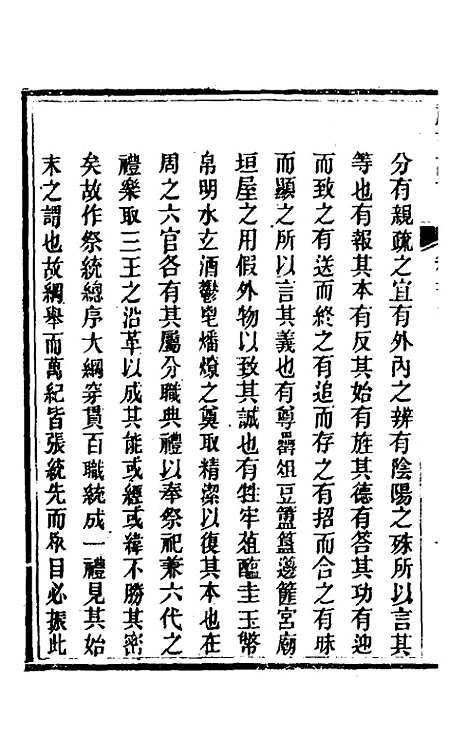 分有親疏之宜有外內之辨有陰陽之殊所以言其
等也有報其本有反其始有旌其德有答其功有迎
而致之有送而終之有追而存之有招而合之有昧
而顯之所以言其義也有尊罍俎豆簠簋籩篚宮廟
垣屋之用假外物以致其誠也有牲牢葅醢圭玉幣
帛明水玄酒鬱鬯燔燎之奠取精潔以復其本也在
周之六官各有其屬分職典禮以奉祭祀兼六代之
禮樂取三王之沿革以成其能或經或緯不勝其密
矣故作祭統總序大綱穿貫百職統成一禮見其始
末之謂也故綱舉而萬紀皆張統先而衆目必振此